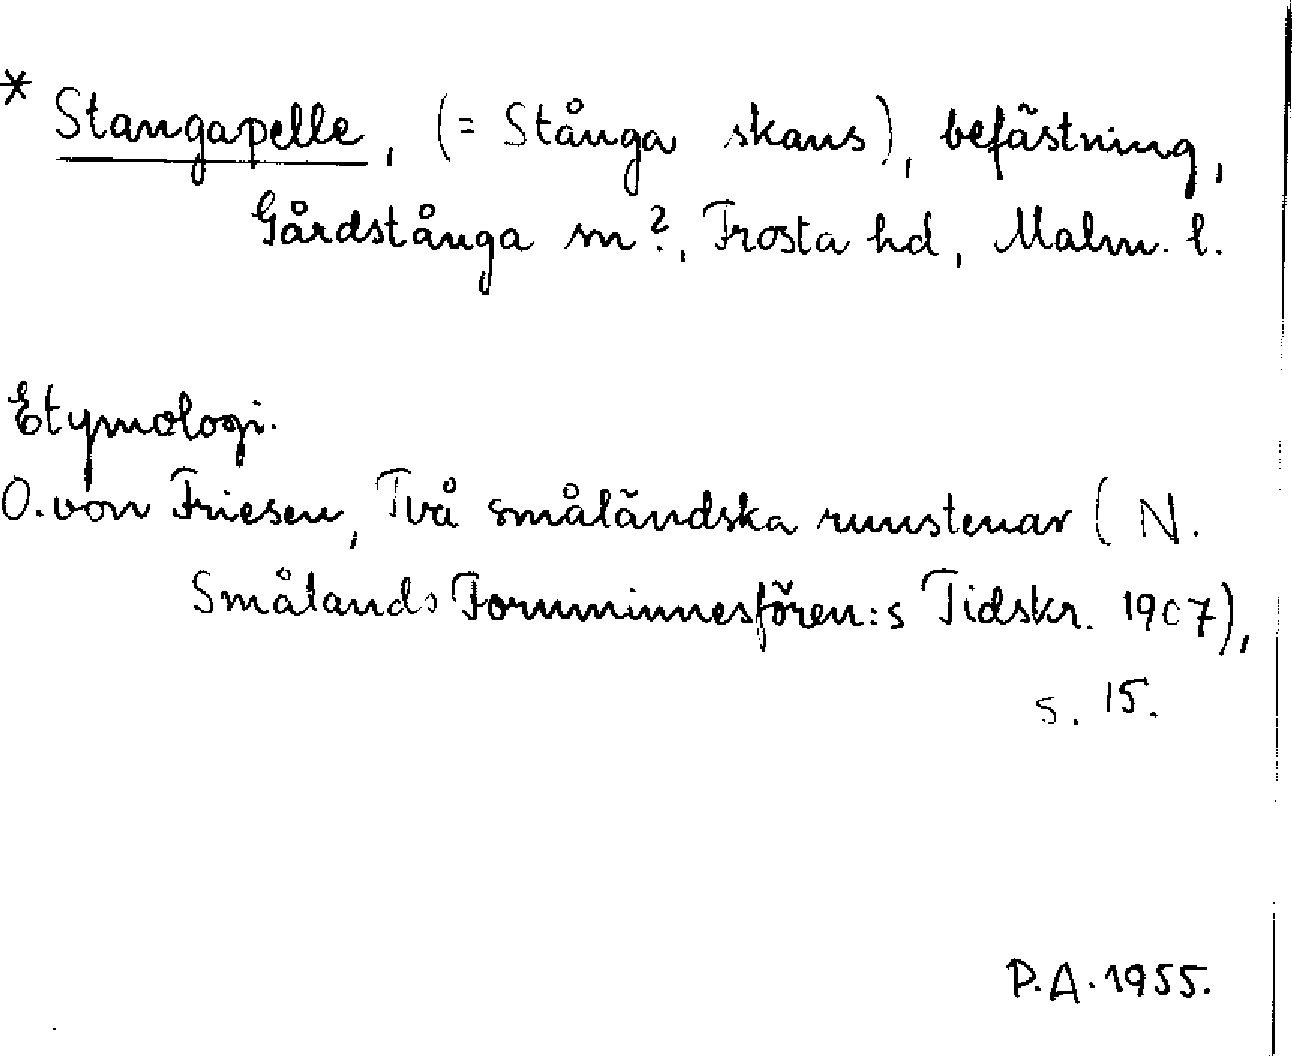 * Stangapelle, (= Stånga skans), befästning,
Gårdstånga sn?, Frosta hd, Malm. l.
Etymologi.
O. von Friesen, Två småländska runstenar (N.
Smålands Fornminnesfören:s Tidskr. 1907),
s. 15.
P.A. 1955.